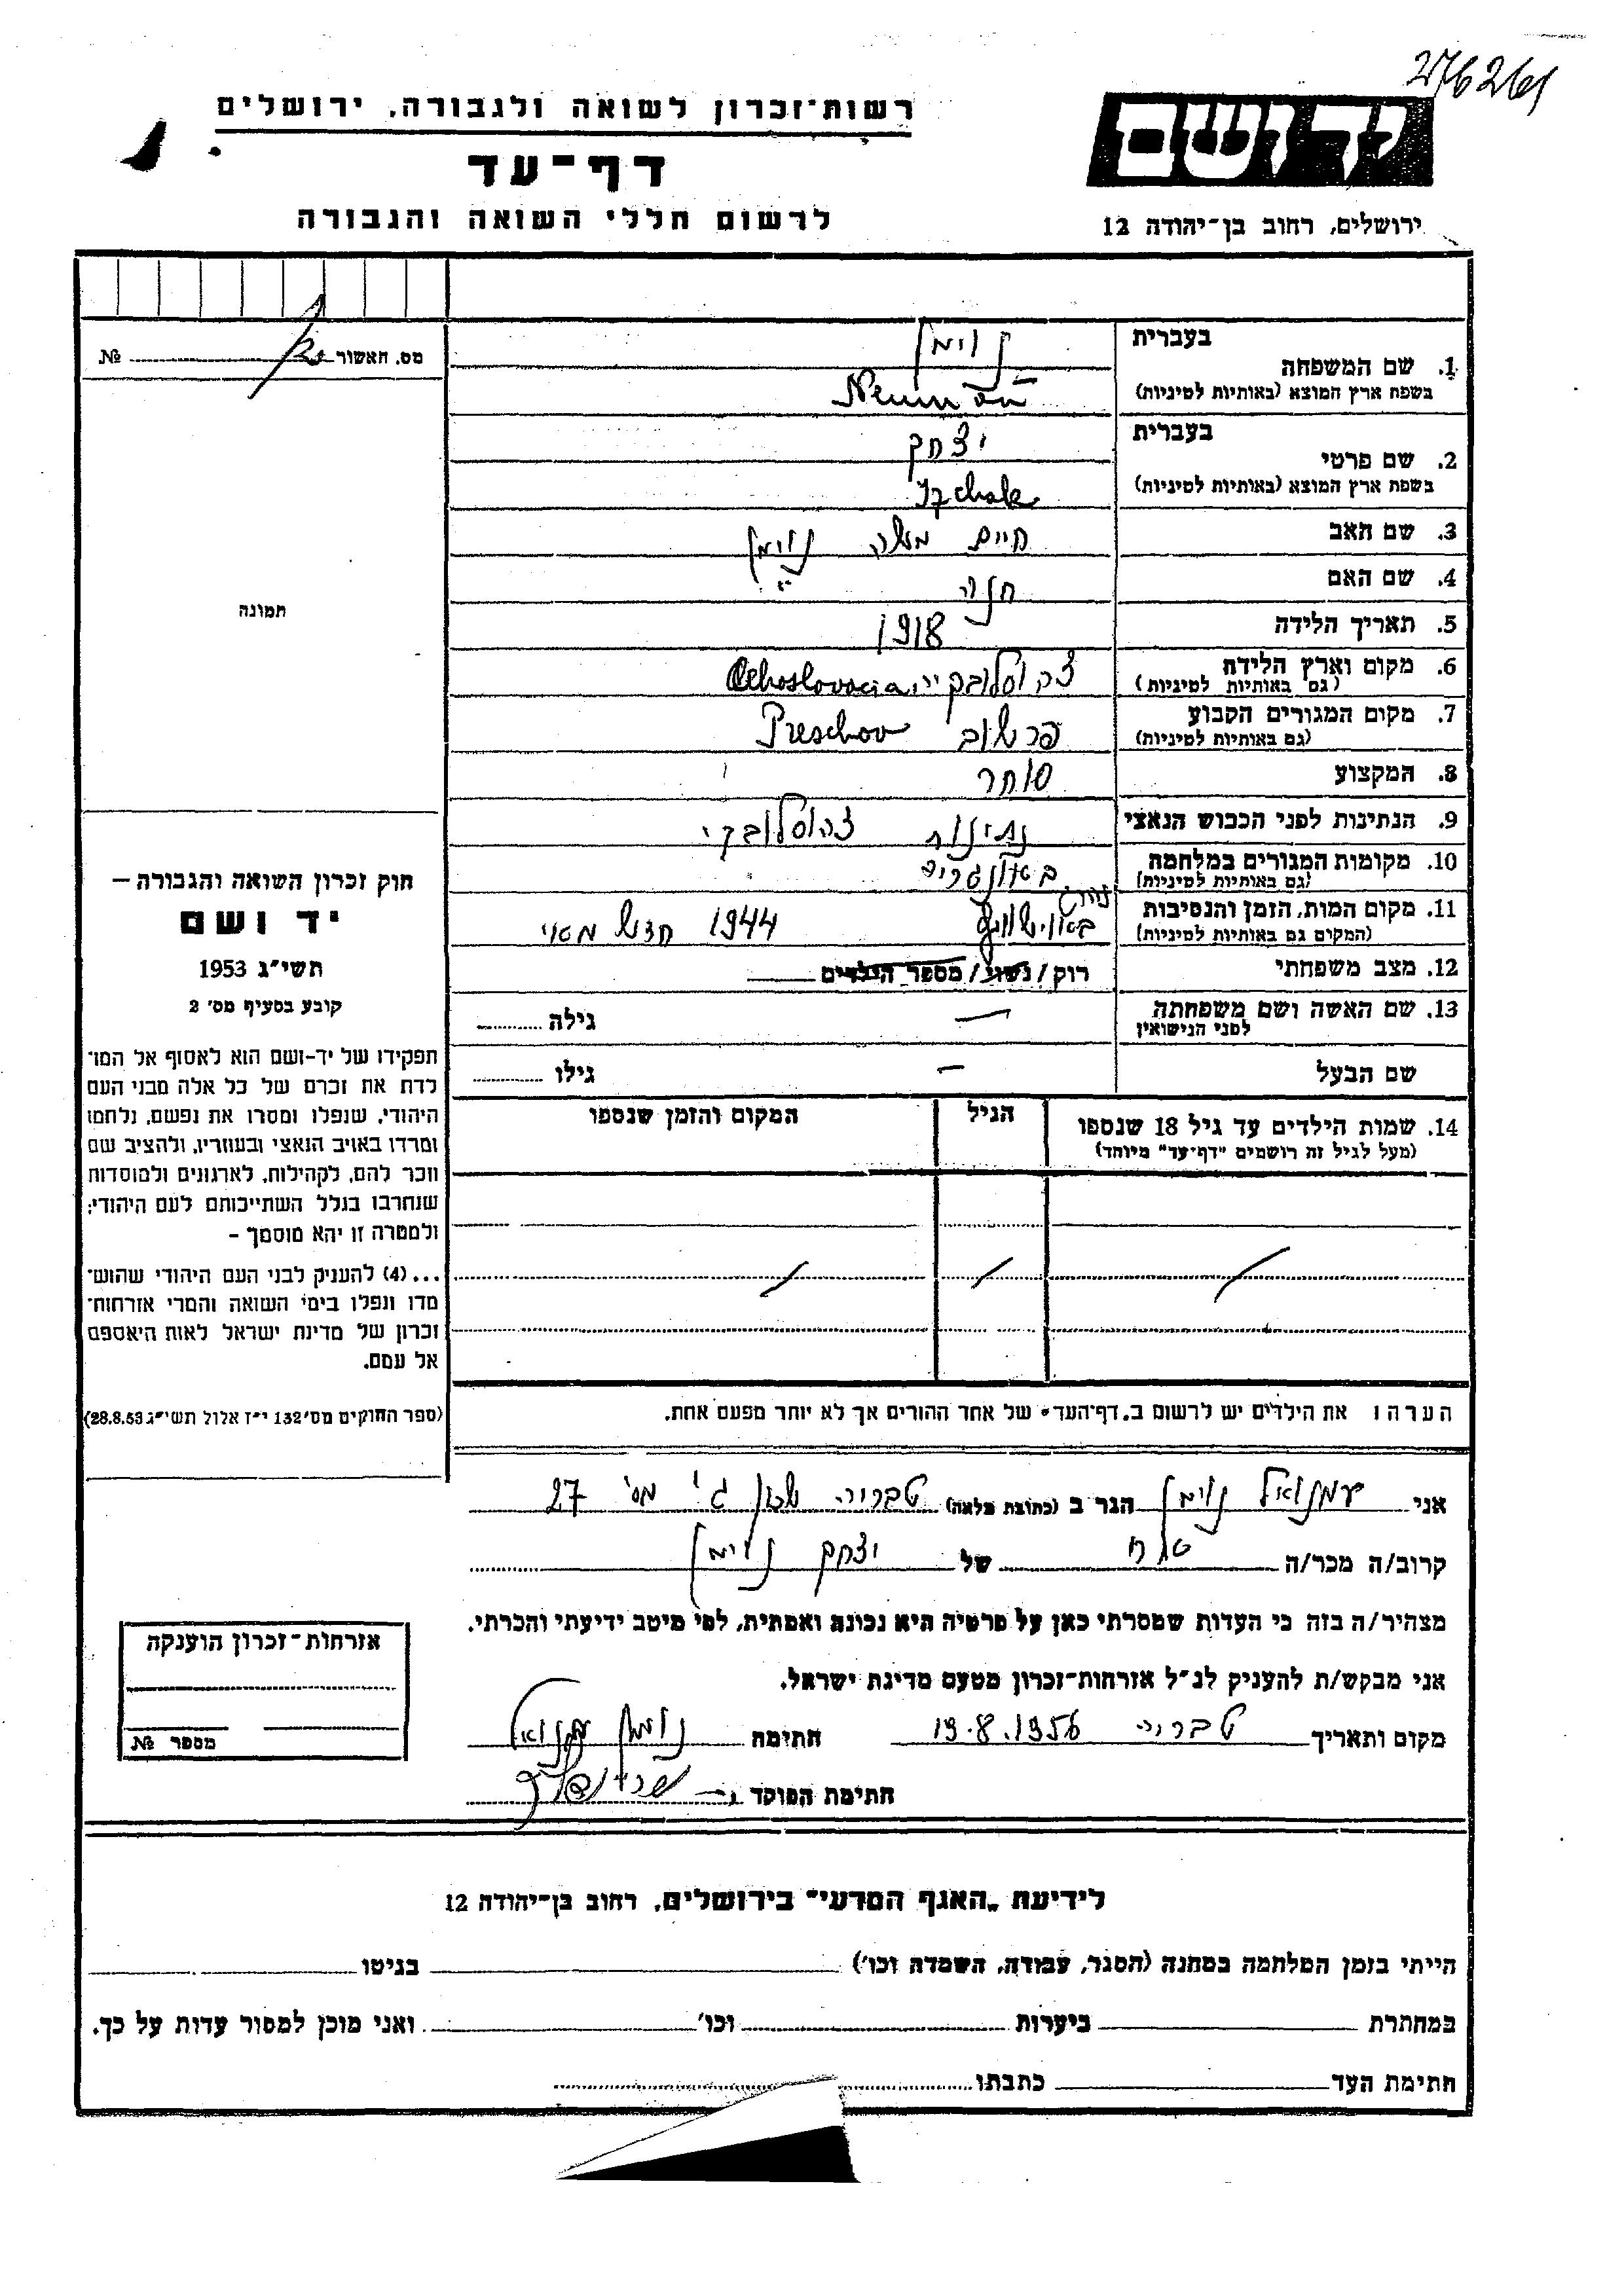 276261
רשות־זכרון לשואה ולגבורה, ירושלים
דף־עד
לרשום חללי השואה והגבורה
יד ושם
ירושלים, רחוב בן־יהודה 12
מס. האשור №
1. שם המשפחה
בעברית נוימן
בשפת ארץ המוצא (באותיות לטיניות) Neuman
2. שם פרטי
בעברית יצחק
בשפת ארץ המוצא (באותיות לטיניות) Izchak
3. שם האב חיים משה נוימן
4. שם האם חנה
5. תאריך הלידה 1918
6. מקום וארץ הלידה צ'כוסלובקיי Cehoslovacia
(גם באותיות לטיניות)
7. מקום המגורים הקבוע פרשוב Preschov
(גם באותיות לטיניות)
8. המקצוע סוחר
9. הנתינות לפני הכבוש הנאצי נתינות צכוסלובקי
10. מקומות המגורים במלחמה
(גם באותיות לטיניות)
11. מקום המות, הזמן והנסיבות נהרג באוישוויץ 1944 חדש מאי
(המקום גם באותיות לטיניות)
12. מצב משפחתי רוק / נשוי / מספר הילדים
13. שם האשה ושם משפחתה — גילה
לפני הנישואין
שם הבעל — גילו
14. שמות הילדים עד גיל 18 שנספו הגיל המקום והזמן שנספו
(מעל לגיל זה רושמים "דף־עד" מיוחד)
הערה: את הילדים יש לרשום ב„דף־העד" של אחד ההורים אך לא יותר מפעם אחת.
תמונה
חוק זכרון השואה והגבורה —
יד ושם
תשי"ג 1953
קובע בסעיף מס' 2
תפקידו של יד-ושם הוא לאסוף אל המו־
לדת את זכרם של כל אלה מבני העם
היהודי, שנפלו ומסרו את נפשם, נלחמו
ומרדו באויב הנאצי ובעוזריו, ולהציב שם
וזכר להם, לקהילות, לארגונים ולמוסדות
שנחרבו בגלל השתייכותם לעם היהודי;
ולמטרה זו יהא מוסמך —
...(4) להעניק לבני העם היהודי שהוש־
מדו ונפלו בימי השואה והמרי אזרחות־
זכרון של מדינת ישראל לאות היאספם
אל עמם.
(ספר החוקים מס' 132 י"ז אלול תשי"ג 28.8.53)
אני עמנואל נוימן הגר ב (כתובת מלאה) טבריה שכון ג' מס' 27
קרוב/ה מכר/ה אח של יצחק נוימן
מצהיר/ה בזה כי העדות שמסרתי כאן על פרטיה היא נכונה ואמתית, לפי מיטב ידיעתי והכרתי.
אני מבקש/ת להעניק לנ"ל אזרחות־זכרון מטעם מדינת ישראל.
מקום ותאריך טבריה 19.8.1956 חתימה נוימן עמנואל
חתימת הפוקד
אזרחות־זכרון הוענקה
מספר №
לידיעת „האגף המדעי" בירושלים, רחוב בן־יהודה 12
הייתי בזמן המלחמה במחנה (הסגר, עבודה, השמדה וכו') בגיטו
במחתרת ביערות וכו' ואני מוכן למסור עדות על כך.
חתימת העד כתבתו